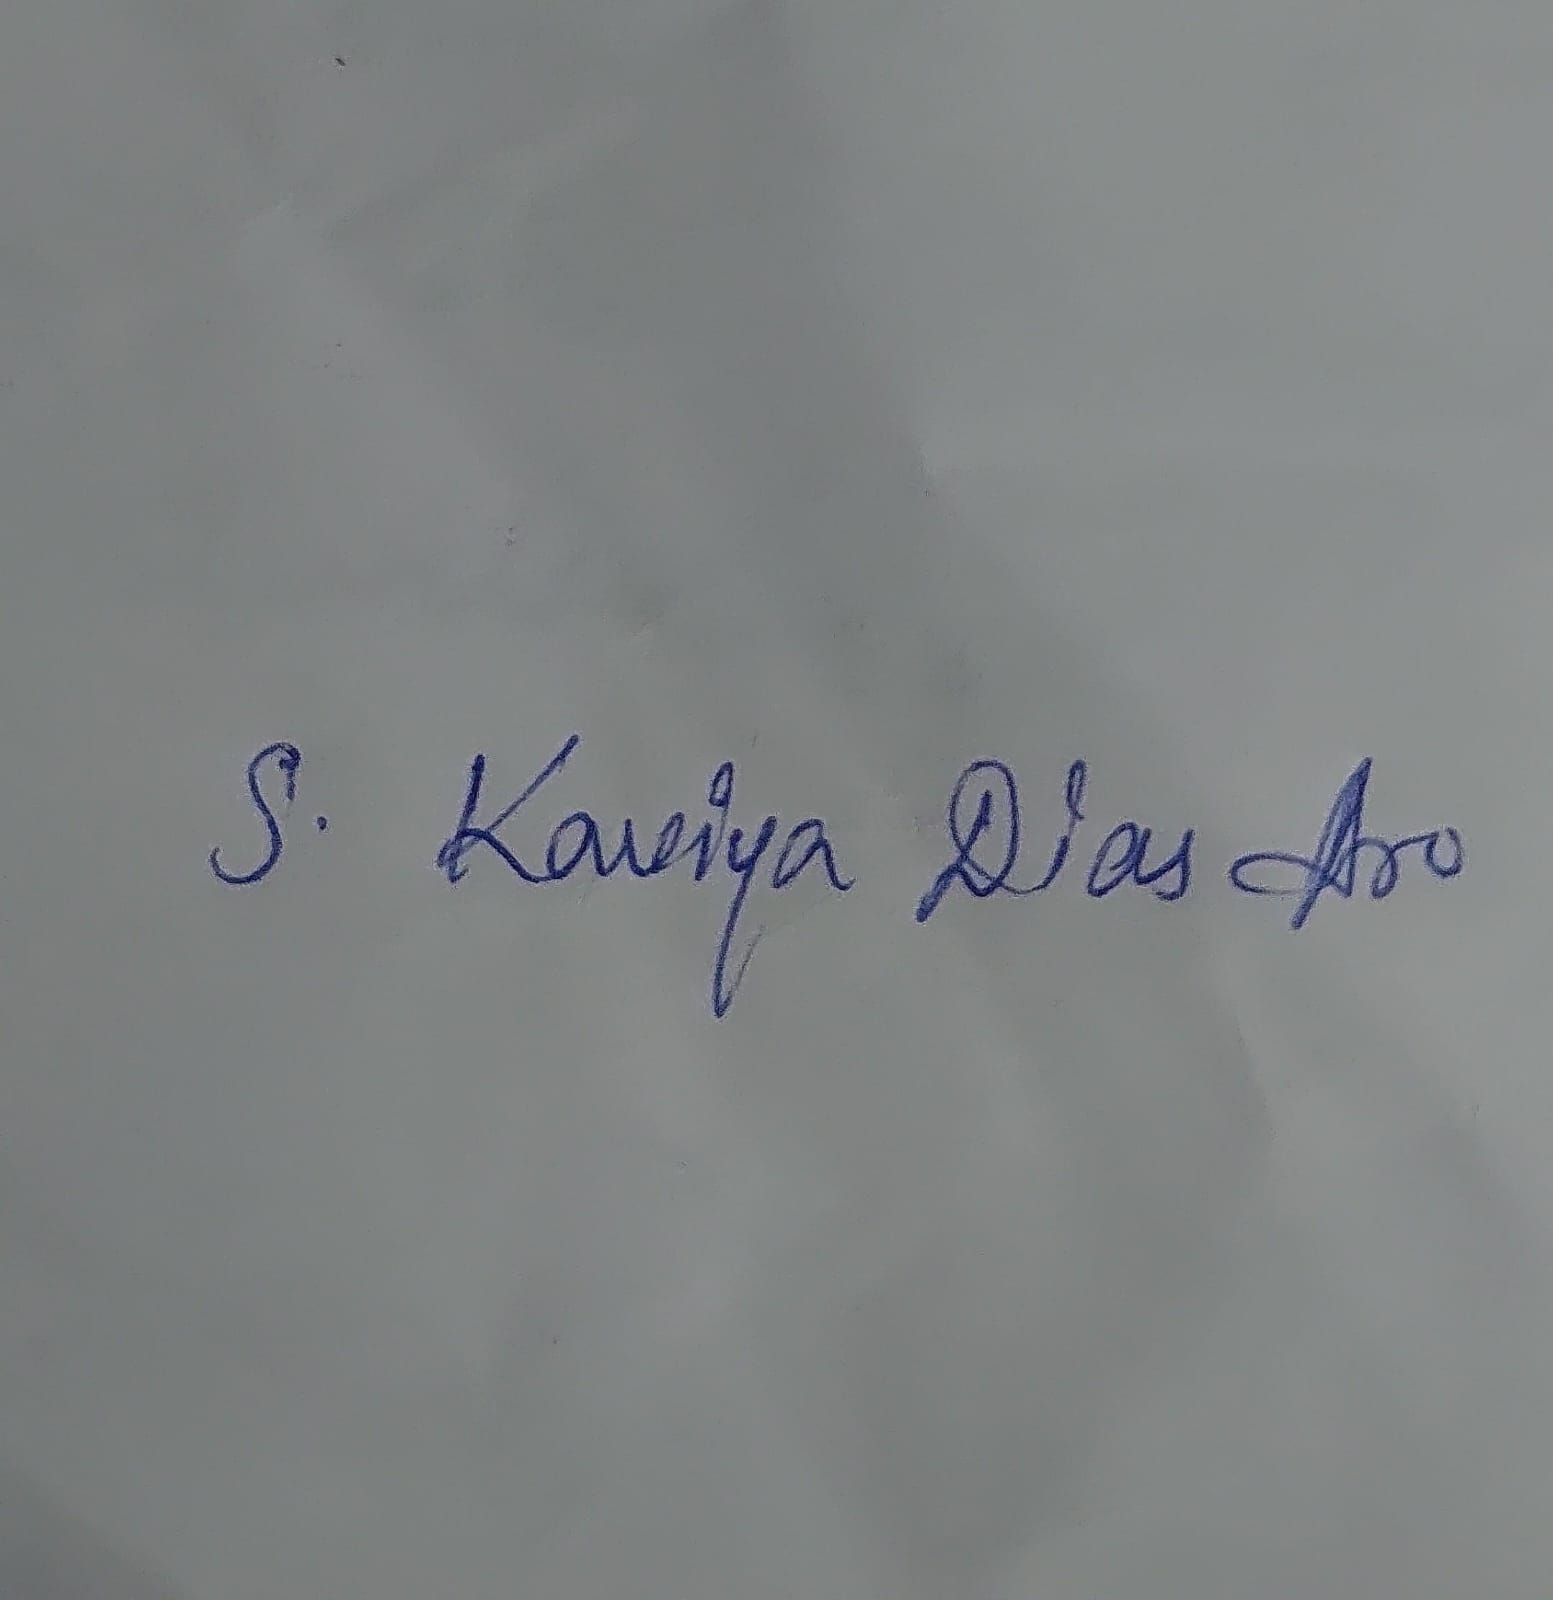 S. Kaviya Dias Aro